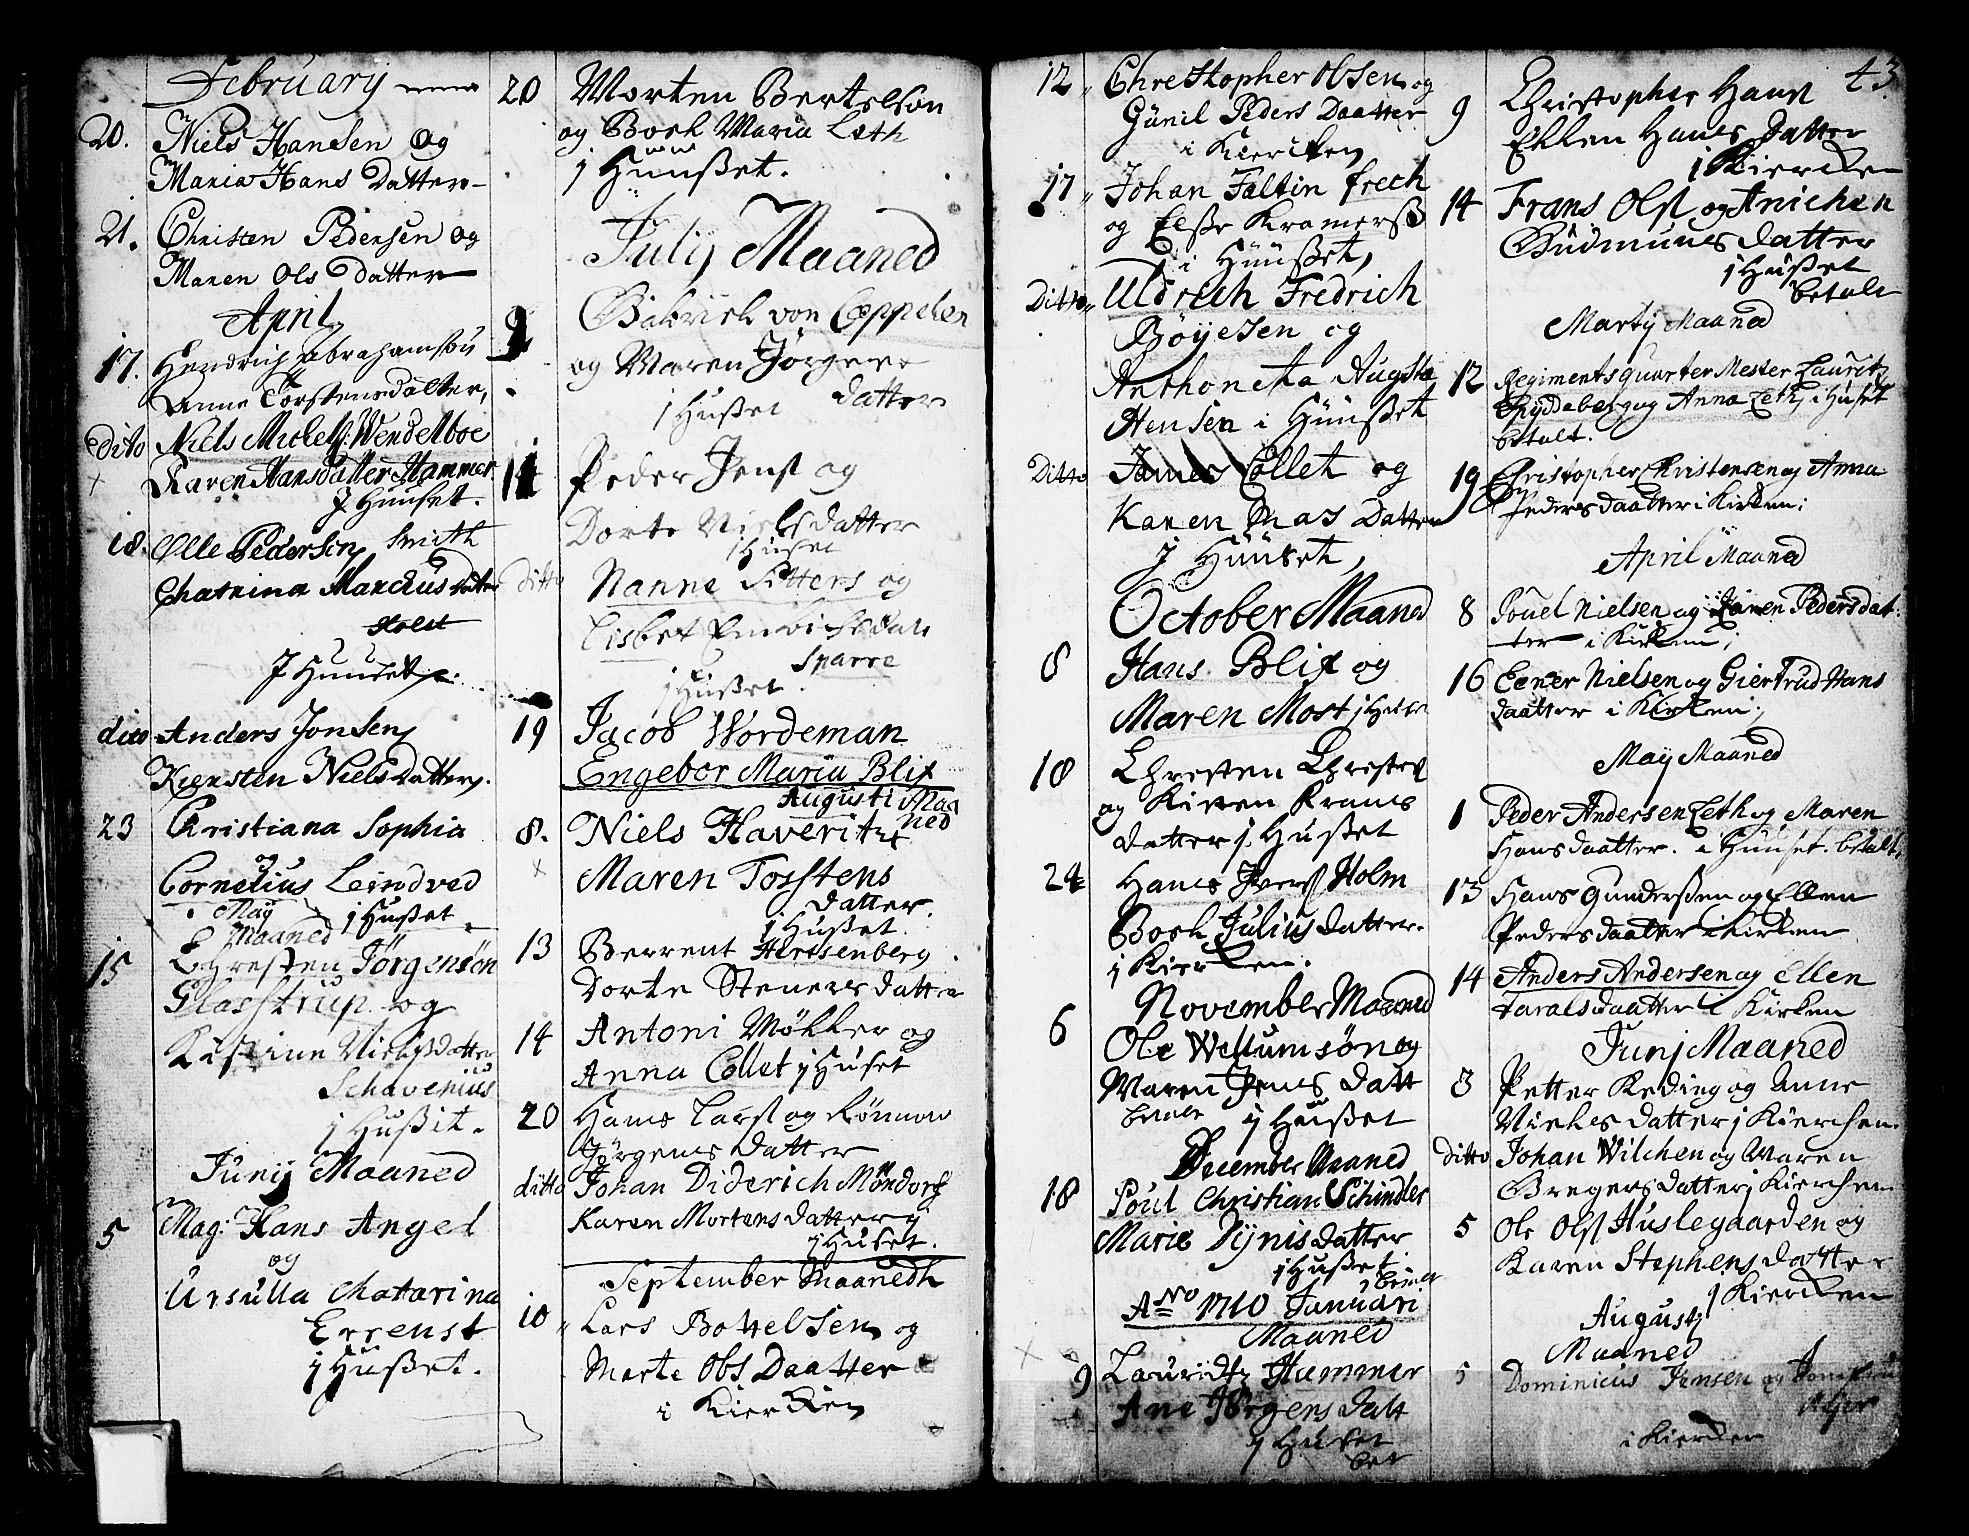 February
20. Niels Hansen og
Maria Hans Datter
21. Christen Pedersen og
Maren Ols Datter
April
17. Hendrich Abrahamsøn
Anne Torstensdatter,
dito Niels Michels: Wendelboe
Karen Hansdatter Hammer
J Huuset.
18. Olle Pedersen Smith
Chatrina Marckus datter
J Huuset
dito Anders Jonsen
Kiersten Niels datter.
23 Christiana Sophia
og
Cornelius Leindved
j Hußet
May
Maaned
15 Christen Jörgensön
Glasstrup og
Kistine Nielsdatter
Schavenius
j Hußit.
Junij Maaned
5 Mag: Hans Angel
og
Ursulla Chatarina
Errenst
j Hußet.
20 Morten Bertelson
og Boel Maria Leth
j Huußet.
Julij Maaned
9 Gabriel von Cappelen
og Maren Jörgens
datter
j Hußet
11 Peder Jens: og
Dorte Nielsdatter
j Hußet
Ditto Nanne Sitters og
Lisbet datt
Sparre
j Hußet.
19 Jacob Wordeman
Engebor Maria Blix
Augusti Maa
ned
8. Niels Haveritz
Maren Tosstens
Datter.
j Hußet.
13 Berrent Hersenberg
Dorte Steners datter
14 Antoni Møller og
Anna Collet j Huset
20 Hans Lars: og Rönnow
Jörgens Datter
ditto Johan Diderich Möndorf
Karen Mortensdatter
j Hußet.
September Maanedh
10 Lars Bottelsen og
Marte Ols Daatter
i Kiercken
12 Chrestopher Olsen og
Günil Peders Daatter
i Kiercken
17 Johan Faltin frech
og Elße Kramerß
i Huußet,
Ditto Uldrich Fredrich
Böyesen og
Anthoneta Augsta
Hensen i Huußet
Ditto James Collet og
Karen Las Datter
J Huuset,
October Maaned
8 Hans Blix og
Maren Most j Hußet
18 Christen Christens:
og Kirsten Frans
datter j Hußet
24 Hans Ivers: Holm
Boel Julius datter.
j Kiercken.
November Maaned
6 Ole Wellumsön og
Maren Jens datt
j Hußet
December Maaned
18 Poul Christian Schindler
Marie Dynis datter
j Hußet
Ano 1710 Januari
Maaned
9 Lauridtz Hammer
Ane Jörgens Datt
j Hußet
bet
43
9 Christopher Hans:
Ellen Hans Datter
j Kiercken
14 Frans Ols: og Anichen
Gudmunds datter
j Hußet
betalt
Martij Maaned
12 Regimentsquarter Mester Lauritz
Spydeberg og Anna Leth, i Huset
betalt.
19 Christopher Christensen og Anna
Peders daatter i Kirken;
April Maaned
8 Pouel Nielsen og Karen Pedersdat
ter i Kirken;
16 Eener Nielsen og Giertrud Hans
daatter i Kirken;
May Maaned
1 Peder Andersen Leth og Maren
Hans daatter. i Huuset. betalt,
13 Hans Gunderßen og Ellen
Peders daatter i Kirken
14 Anders Andersen og Ellen
Taralsdaatter i Kirken
Junj Maaned
3 Petter Keding og Anne
Niels datter j Kierchen.
Ditto Johan Wilchen og Maren
Bregers datter j Kierchen
5 Ole Ols: Huslegaarden og
Karen Stephens datter
j Kiercken
Augustj
Maaned
5 Dominicus Jensen og
i Kiercken